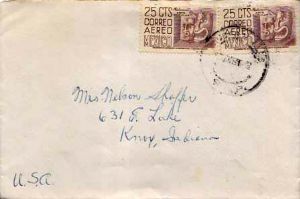 25 CTS
CORREO
AEREO
MEXICO
25 CTS
CORREO
AEREO
MEXICO
Mrs Nelson Shaffer
631 E. Lake
Knox, Indiana
U.S.A.